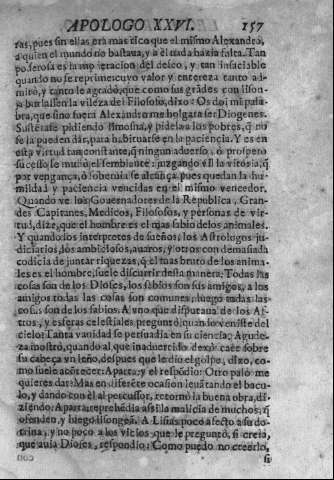 APOLOGO XXVI. 157
zas, pues sin ellas era mas rico que el mismo Alexandro,
a quien el mundo no bastava, y a el nada hazia falta. Tan
poderosa es la moderacion del deseo, y tan insaciable
quando no se reprime: cuyo valor y entereza tanto ad-
mirò, y tanto le agradò, que como sus grādes con lison-
ja burlassen la vileza del Filosofo, dixo: Os doi mi pala-
bra, que sino fuera Alexandro me holgara ser Diogenes.
Sustētase pidiendo limosna, y pidela a los pobres, q̄ no
se la pueden dar, para habituarse en la paciencia. Y es en
esta virtud tan constante, q̄ ningun adverso, ò prospero
sucesso le mudò el semblante: juzgando vil la vitoria, q̄
por vengança, ò sobervia se alcāça, pues quedan la hu-
mildad y paciencia vencidas en el mismo vencedor.
Quando ve los Governadores de la Republica, Gran-
des Capitanes, Medicos, Filosofos, y personas de vir-
tud, dize, que el hombre es el mas sabio de los animales.
Y quando los interpretes de sueños, los Astrologos ju-
diciarios, los ambiciosos, avaros, y otros con demasiada
codicia de juntar riquezas, q̄ el mas bruto de los anima-
les es el hombre, suele discurrir desta manera: Todas las
cosas son de los Dioses, los sabios son sus amigos, a los
amigos todas las cosas son comunes, luego todas las
cosas son de los sabios. A uno que disputava de los As-
tros, y esferas celestiales preguntò, quando veniste del
cielo: Tanta vanidad se persuadia en su ciencia: Agude-
za mostrò, quando al que inadvertido dexò caer sobre
su cabeça un leño, despues que le dio el golpe, dixo, co-
mo suele acōtecer: Aparta: y el respōdiò: Otro palo me
quieres dar? Mas en diferēte ocasion levātando el bacu-
lo, y dando con èl al percussor, retornò la buena obra, di-
ziendo: Aparta: reprehēdia assi la malicia de muchos, q̄
ofenden, y luego lisongeā. A Lisias poco afecto a su do-
trina, y no poco a los vicios, que le preguntò, si creia,
que avia Dioses, respondio: Como puedo no creerlo,
si